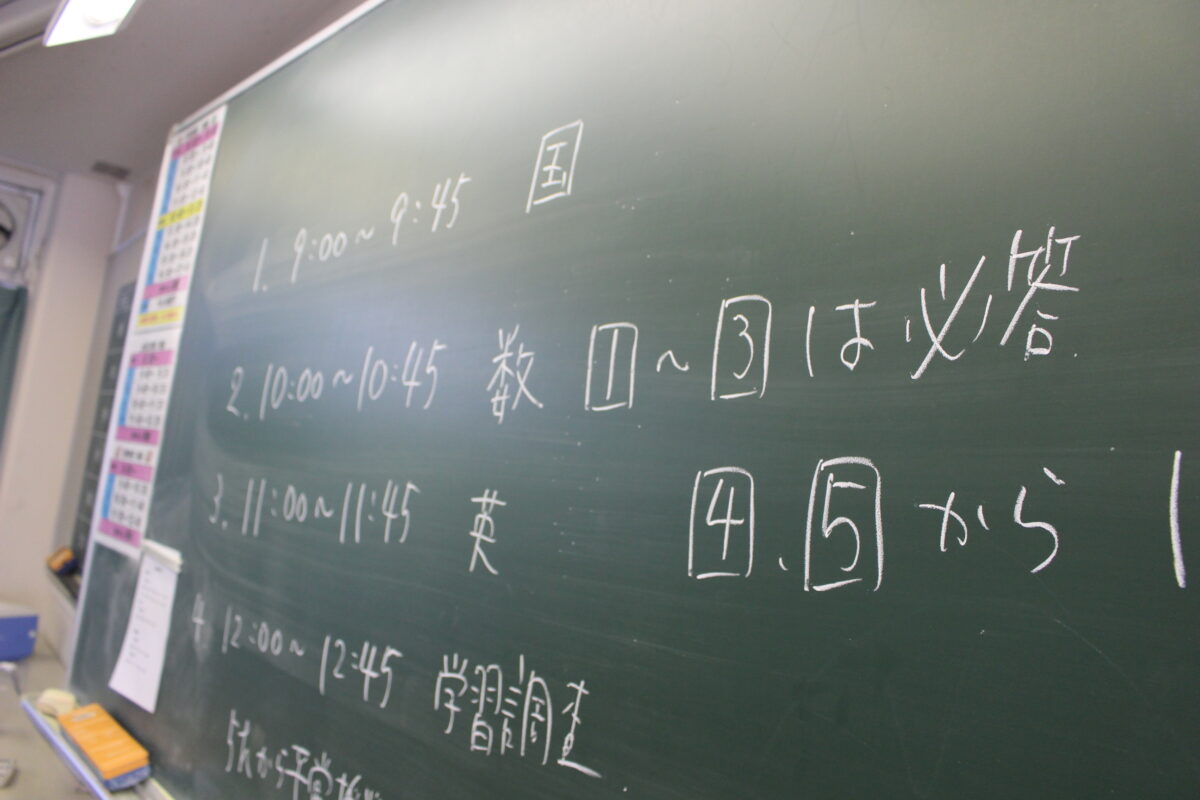 1. 9:00~9:45 国
2. 10:00~10:45 数 1~3は必答
3. 11:00~11:45 英 4、5から1
4. 12:00~12:45 学習調査
5大から平常